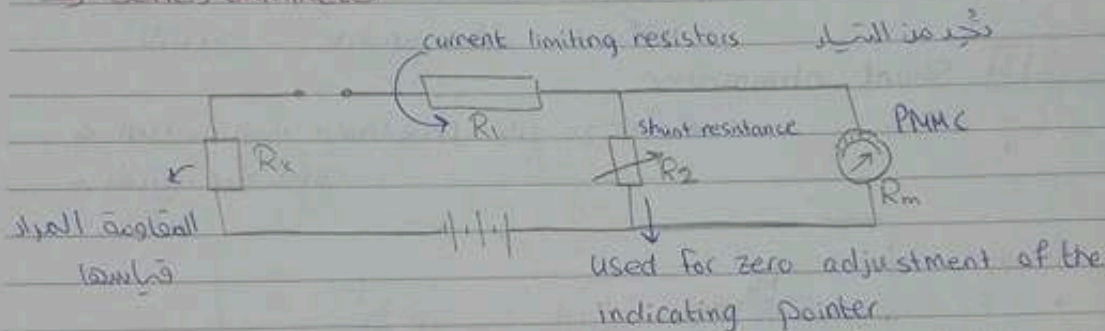 current limiting resistors من التيار
R1
shunt resistance
PMMC
Rx
R2
Rm
المقاومة المراد
قياسها
used for zero adjustment of the
indicating pointer.